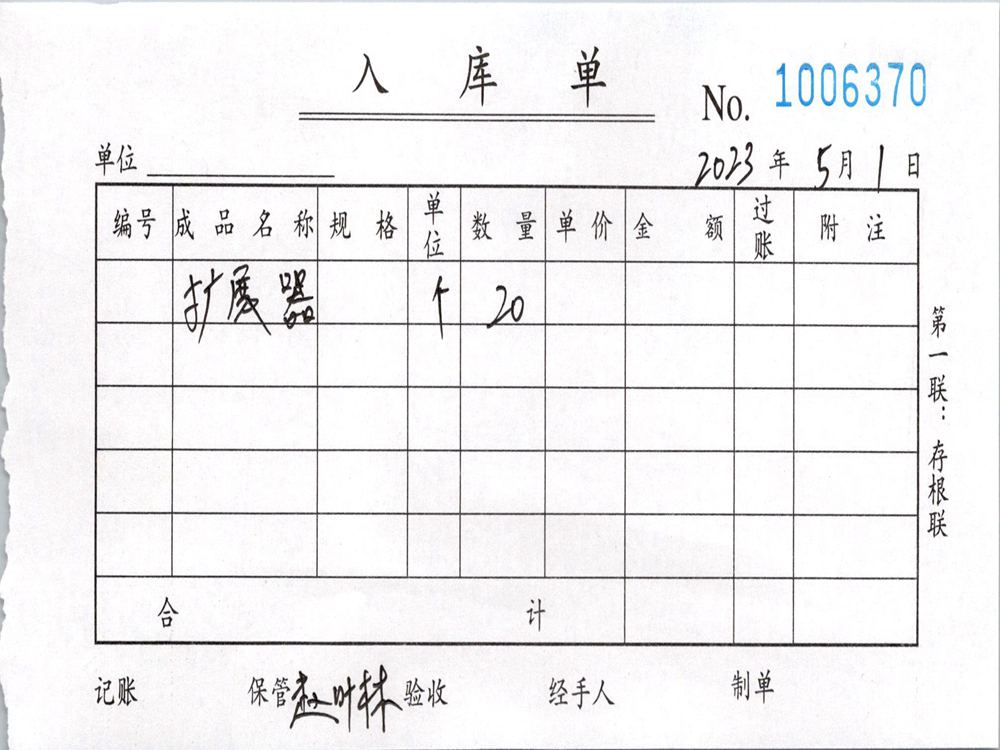 入库单
No. 1006370
单位
2023年5月1日
编号 成品名称 规格 单位 数量 单价 金额 过账 附注
扩展器 个 20
合计
记账 保管 赵叶林 验收 经手人 制单
第一联：存根联